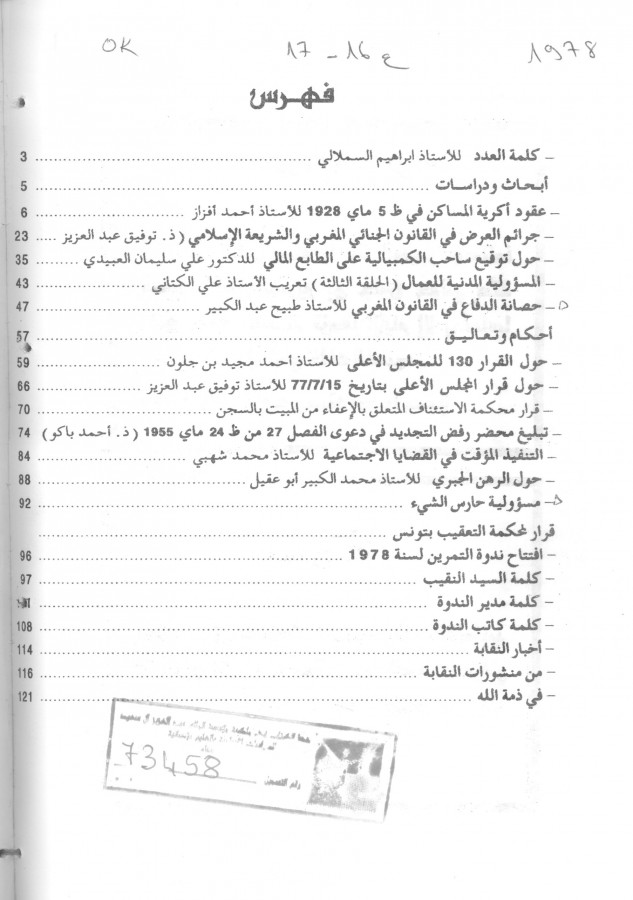 OK
ع 16 - 17
1978
فهرس
– كلمة العدد للأستاذ ابراهيم السملالي ........ 3
أبحاث ودراسات ........ 5
– عقود أكرية المساكن في ظ 5 ماي 1928 للأستاذ أحمد أفزاز ........ 6
– جرائم العرض في القانون الجنائي المغربي والشريعة الإسلامي (ذ. توفيق عبد العزيز ..... 23
– حول توقيع ساحب الكمبيالية على الطابع المالي للدكتور علي سليمان العبيدي ........ 35
– المسؤولية المدنية للعمال (الحلقة الثالثة) تعريب الاستاذ علي الكتاني ........ 43
– حصانة الدفاع في القانون المغربي للأستاذ طبيح عبد الكبير ........ 47
أحكام وتعاليق ........ 57
– حول القرار 130 للمجلس الأعلى للأستاذ أحمد مجيد بن جلون ........ 59
– حول قرار المجلس الأعلى بتاريخ 77/7/15 للأستاذ توفيق عبد العزيز ........ 66
– قرار محكمة الاستئناف المتعلق بالإعفاء من المبيت بالسجن ........ 70
– تبليغ محضر رفض التجديد في دعوى الفصل 27 من ظ 24 ماي 1955 (ذ. أحمد باكو) ........ 74
– التنفيذ المؤقت في القضايا الاجتماعية للأستاذ محمد شهبي ........ 84
– حول الرهن الجبري للأستاذ محمد الكبير أبو عقيل ........ 88
– مسؤولية حارس الشيء ........ 92
قرار لمحكمة التعقيب بتونس
– افتتاح ندوة التمرين لسنة 1978 ........ 96
– كلمة السيد النقيب ........ 97
– كلمة مدير الندوة ........
– كلمة كاتب الندوة ........ 108
– أخبار النقابة ........ 114
– من منشورات النقابة ........ 116
– في ذمة الله ........ 121
73458